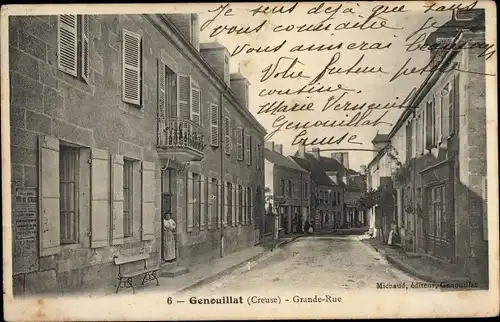 Je sens déjà que, sans
vous connaître
vous aimerai beaucoup
Votre future petite
cousine.
Marie
Genouillat
Creuse
Michaud, éditeur, Genouillat
6 - Genouillat (Creuse) - Grande-Rue